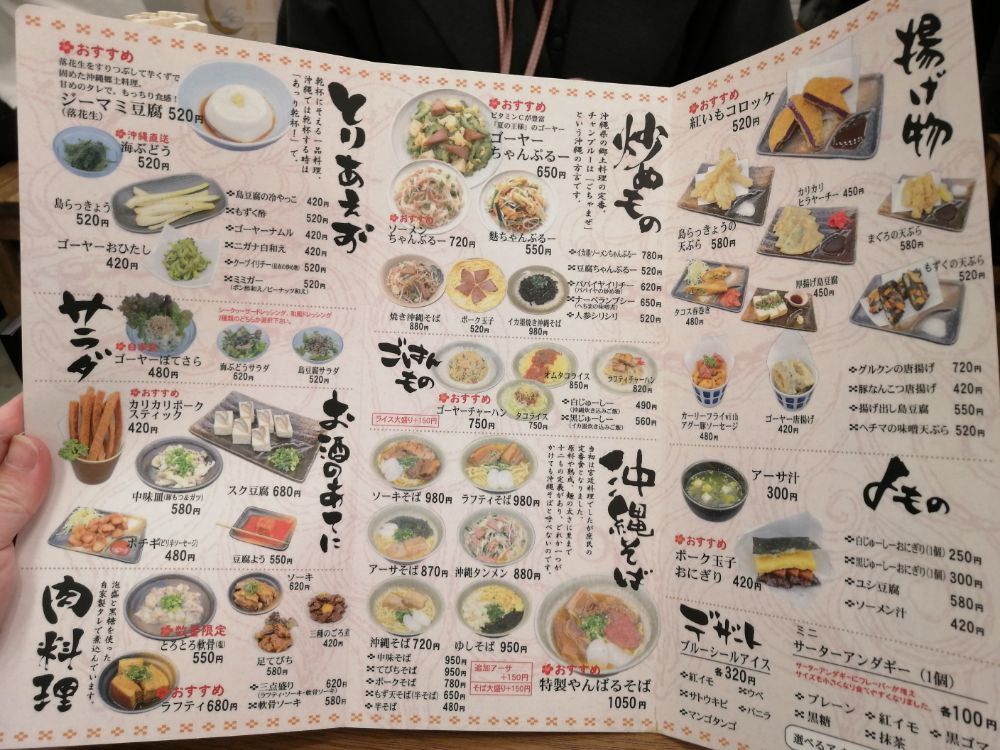 とりあえず
乾杯にそえる一品料理。
沖縄では乾杯する時は
「あり乾杯!」で。
おすすめ
落花生をすりつぶして芋くずで
固めた沖縄郷土料理。
甘めのタレで、もっちり食感!
ジーマミ豆腐 520円
(落花生)
沖縄直送
海ぶどう
520円
島らっきょう
520円
ゴーヤーおひたし
420円
島豆腐の冷やっこ 420円
もずく酢 420円
ゴーヤーナムル 420円
ニガナ白和え 420円
クーブイリチー 520円
ミミガー 520円
(ポン酢和え/ピーナッツ和え)
サラダ
シークヮーサードレッシング、和風ドレッシング
2種類のどちらか選択下さい。
ゴーヤーぽてさら
480円
海ぶどうサラダ
620円
島豆腐サラダ
520円
お酒のあてに
おすすめ
カリカリポーク
スティック
420円
スク豆腐 680円
中味皿(豚もつ&ガツ)
580円
ポチギ(ピリ辛ソーセージ)
480円
豆腐よう 550円
肉料理
泡盛と黒糖を使った
自家製タレで煮込んでいます。
数量限定
とろとろ軟骨(塩)
550円
ソーキ
620円
足てびち
580円
三種のごろ煮
420円
おすすめ
ラフティ680円
三点盛り 620円
(ラフティ・ソーキ・軟骨ソーキ)
軟骨ソーキ 580円
炒めもの
沖縄県の郷土料理の定番。
チャンプルーは「ごちゃまぜ」
という沖縄の方言です。
おすすめ
ビタミンCが豊富
「夏の王様」のゴーヤー
ゴーヤー
ちゃんぷるー
650円
おすすめ
ソーメン
ちゃんぷるー 720円
麩ちゃんぷるー
550円
焼き沖縄そば
880円
ポーク玉子
520円
イカ墨焼き沖縄そば
980円
イカ墨ソーメンちゃんぷるー 780円
豆腐ちゃんぷるー 520円
パパイヤイリチー 620円
(パパイヤの炒め物)
ナーベランブシー 650円
(へちまの味噌煮)
人参シリシリ 520円
ごはんもの
ライス大盛り+150円
おすすめ
ゴーヤーチャーハン
750円
オムタコライス
850円
タコライス
750円
ラフティチャーハン
820円
白じゅーしー 490円
(沖縄炊き込みご飯)
黒じゅーしー 560円
(イカ墨炊き込みご飯)
沖縄そば
当初は宮廷料理でしたが庶民の
定番食となりました。
原料や熟成、麺の太さに至るまで
十二もの定義があり、どれか一つが
かけても沖縄そばと呼べないのです。
ソーキそば 980円
ラフティそば 980円
アーサそば 870円
沖縄タンメン 880円
沖縄そば720円
ゆしそば 950円
中味そば 950円
てびちそば 950円
ポークそば 780円
もずく天そば(半そば) 650円
半そば 480円
追加アーサ
+150円
そば大盛り+150円
おすすめ
特製やんばるそば
1050円
揚げ物
おすすめ
紅いもコロッケ
520円
島らっきょうの
天ぷら 580円
カリカリ
ヒラヤーチー 450円
まぐろの天ぷら
580円
タコス春巻き
480円
厚揚げ島豆腐
450円
もずくの天ぷら
520円
カーリーフライwith
アグー豚ソーセージ
480円
ゴーヤー唐揚げ
420円
グルクンの唐揚げ 720円
豚なんこつ唐揚げ 420円
揚げ出し島豆腐 550円
ヘチマの味噌天ぷら 520円
よもの
アーサ汁
300円
おすすめ
ポーク玉子
おにぎり 420円
白じゅーしーおにぎり(1個) 250円
黒じゅーしーおにぎり(1個) 300円
ユシ豆腐 580円
ソーメン汁 420円
デザート
ブルーシールアイス
各320円
紅イモ
ウベ
サトウキビ
バニラ
マンゴタンゴ
ミニ
サーターアンダギー
(1個)
サーターアンダギーにフレーバーが増え
サイズも小さくなり食べやすくなりました。
各100円
プレーン
紅イモ
黒ゴマ
黒糖
抹茶